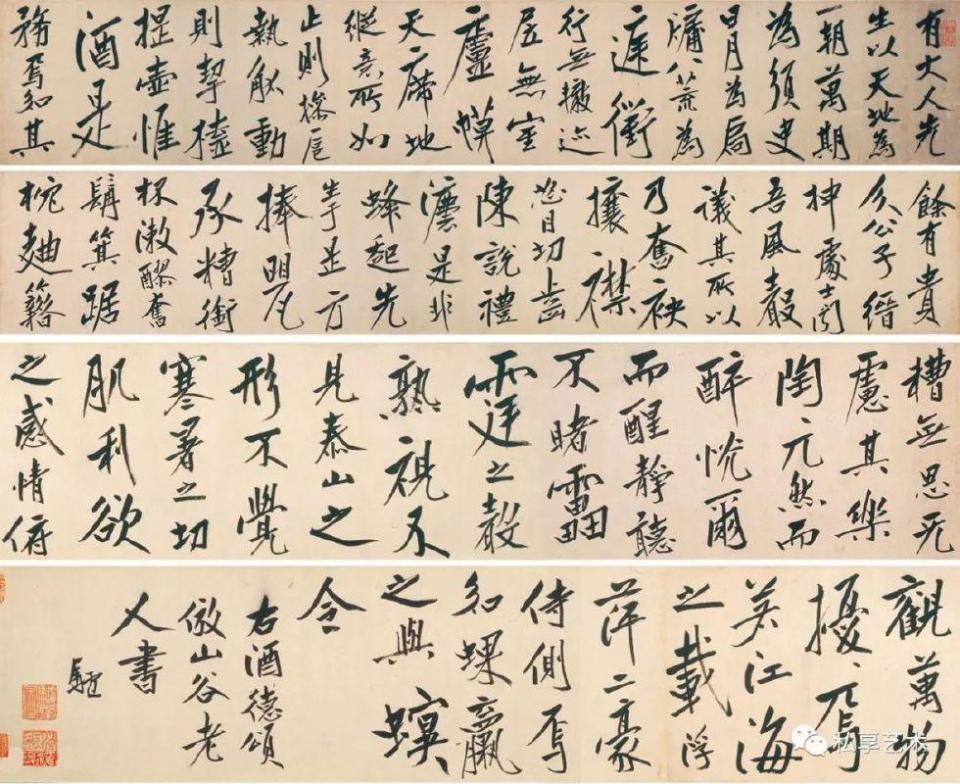 有大人先
生以天地為
一朝萬期
為須臾
日月為扃
牖八荒為
庭衢
行無轍迹
居無室
廬幕
天席地
縱意所如
止則操卮
執觚動
則挈榼
提壺惟
酒是
務焉知其
餘有貴
介公子縉
紳處士聞
吾風聲
議其所以
乃奮袂
攘襟
怒目切齒
陳說禮
灋是非
蜂起先
生于是方
捧甖
承糟銜
杯漱醪奮
髯箕踞
枕麯籍
糟無思无
慮其樂
陶〻兀然而
醉恍爾
而醒靜聽
不睹靁
霆之聲
熟視不
見泰山之
形不覺
寒暑之切
肌利欲
之感情俯
觀萬物
擾〻焉
若江海
之載浮
萍二豪
侍側焉
如蜾蠃
之與螟
令
右酒德頌
倣山谷老
人書
私享艺术